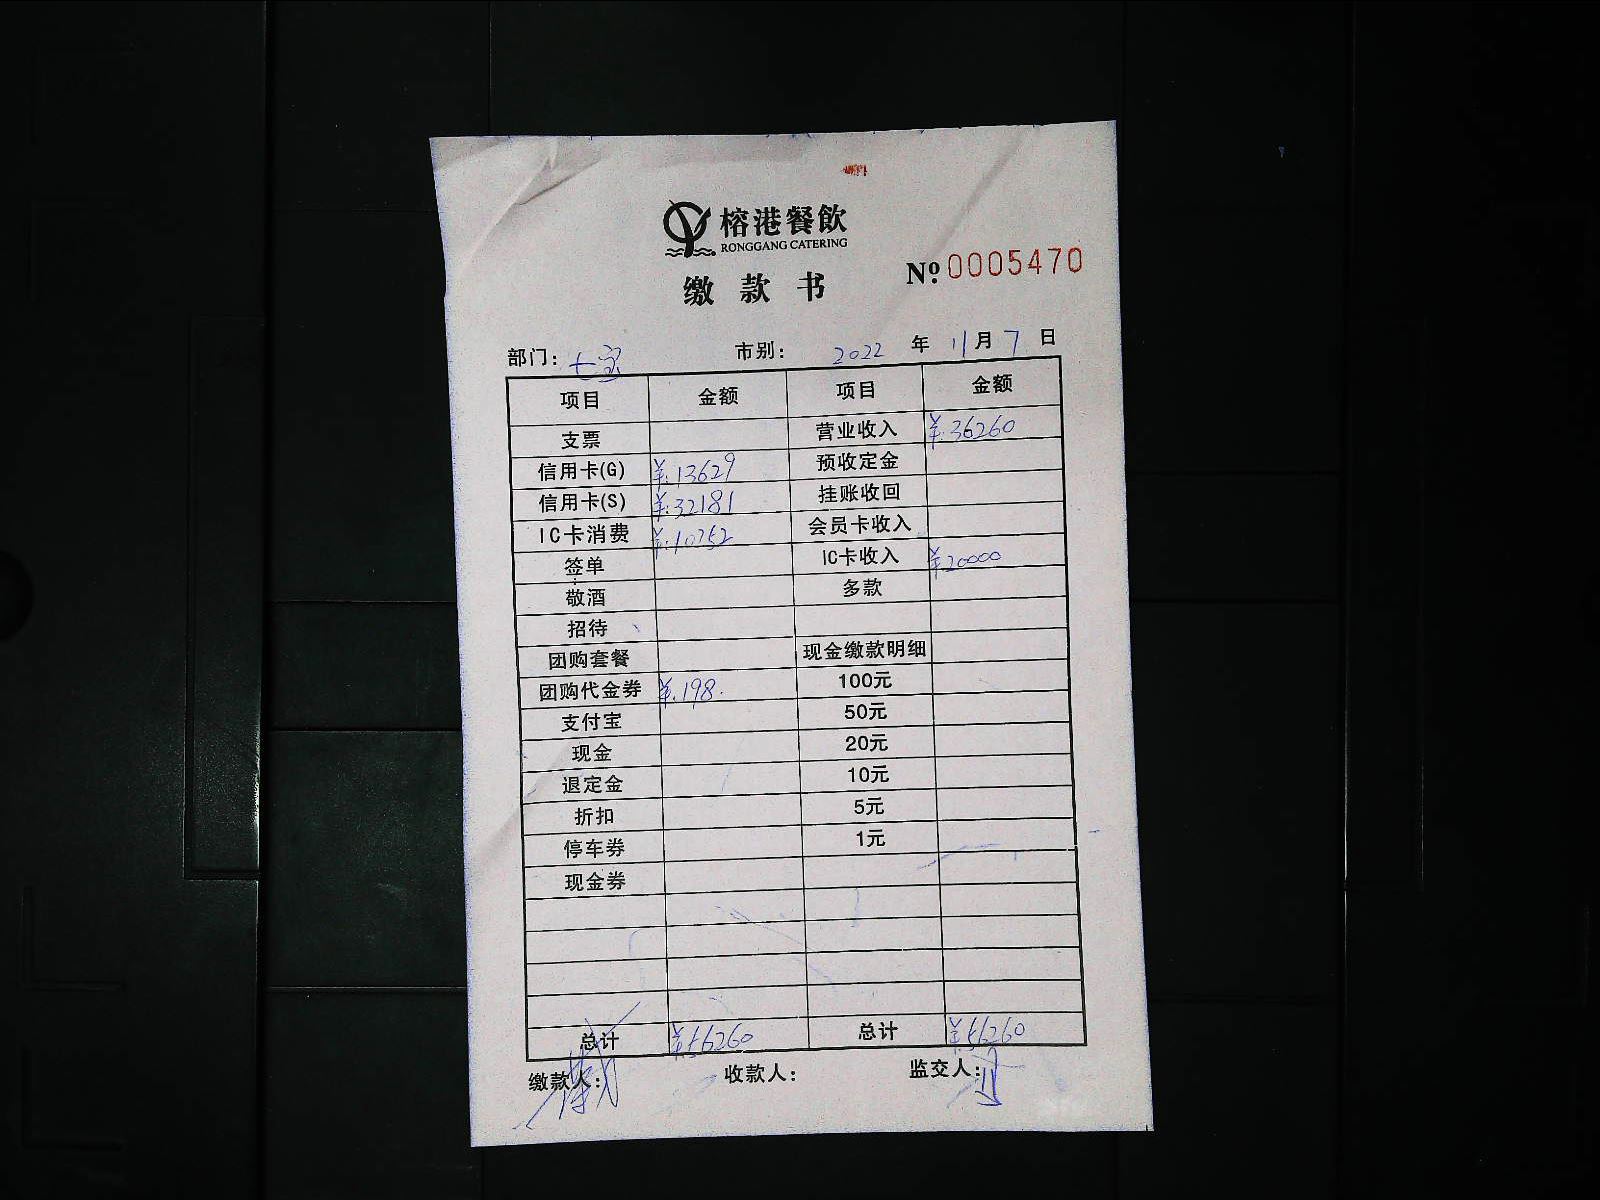 榕港餐飲
RONGGANG CATERING
缴款书 №.0005470
部门：七宝 市别： 2022 年 11月 7 日
项目 金额 项目 金额
支票 营业收入 ¥.36260
信用卡(G) ¥.13629 预收定金
信用卡(S) ¥.32181 挂账收回
IC卡消费 ¥.10252 会员卡收入
签单 IC卡收入 ¥20000
敬酒 多款
招待
团购套餐 现金缴款明细
团购代金券 ¥.198. 100元
支付宝 50元
现金 20元
退定金 10元
折扣 5元
停车券 1元
现金券
总计 ¥56260 总计 ¥56260
缴款人： 收款人： 监交人：